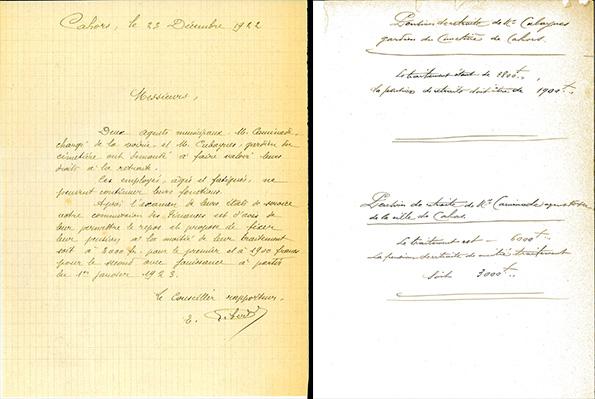 Cahors, le 23 Décembre 1922
Messieurs,
Deux agents municipaux, M. Caminade,
chargé de la voirie, et M. Cubaynes, gardien du
cimetière ont demandé à faire valoir leurs
droits à la retraite.
Ces employés, âgés et fatigués, ne
peuvent continuer leurs fonctions.
Après l'examen de leurs états de service
votre commission des Finances est d'avis de
leur permettre le repos et propose de fixer
leur pension à la moitié de leur traitement
soit à 3000 fr. pour le premier et à 1900 francs
pour le second avec jouissance à partir
du 1er janvier 1923.
Le Conseiller rapporteur,
E.
Pension de retraite de Mr Cubaynes
gardien du Cimetière de Cahors.
Le traitement étant de 3800f,
la pension de retraite doit être de 1900f.
Pension de retraite de Mr Caminade
de la ville de Cahors.
Le traitement est 6000f
La pension de retraite de moitié traitement
Soit 3000f.